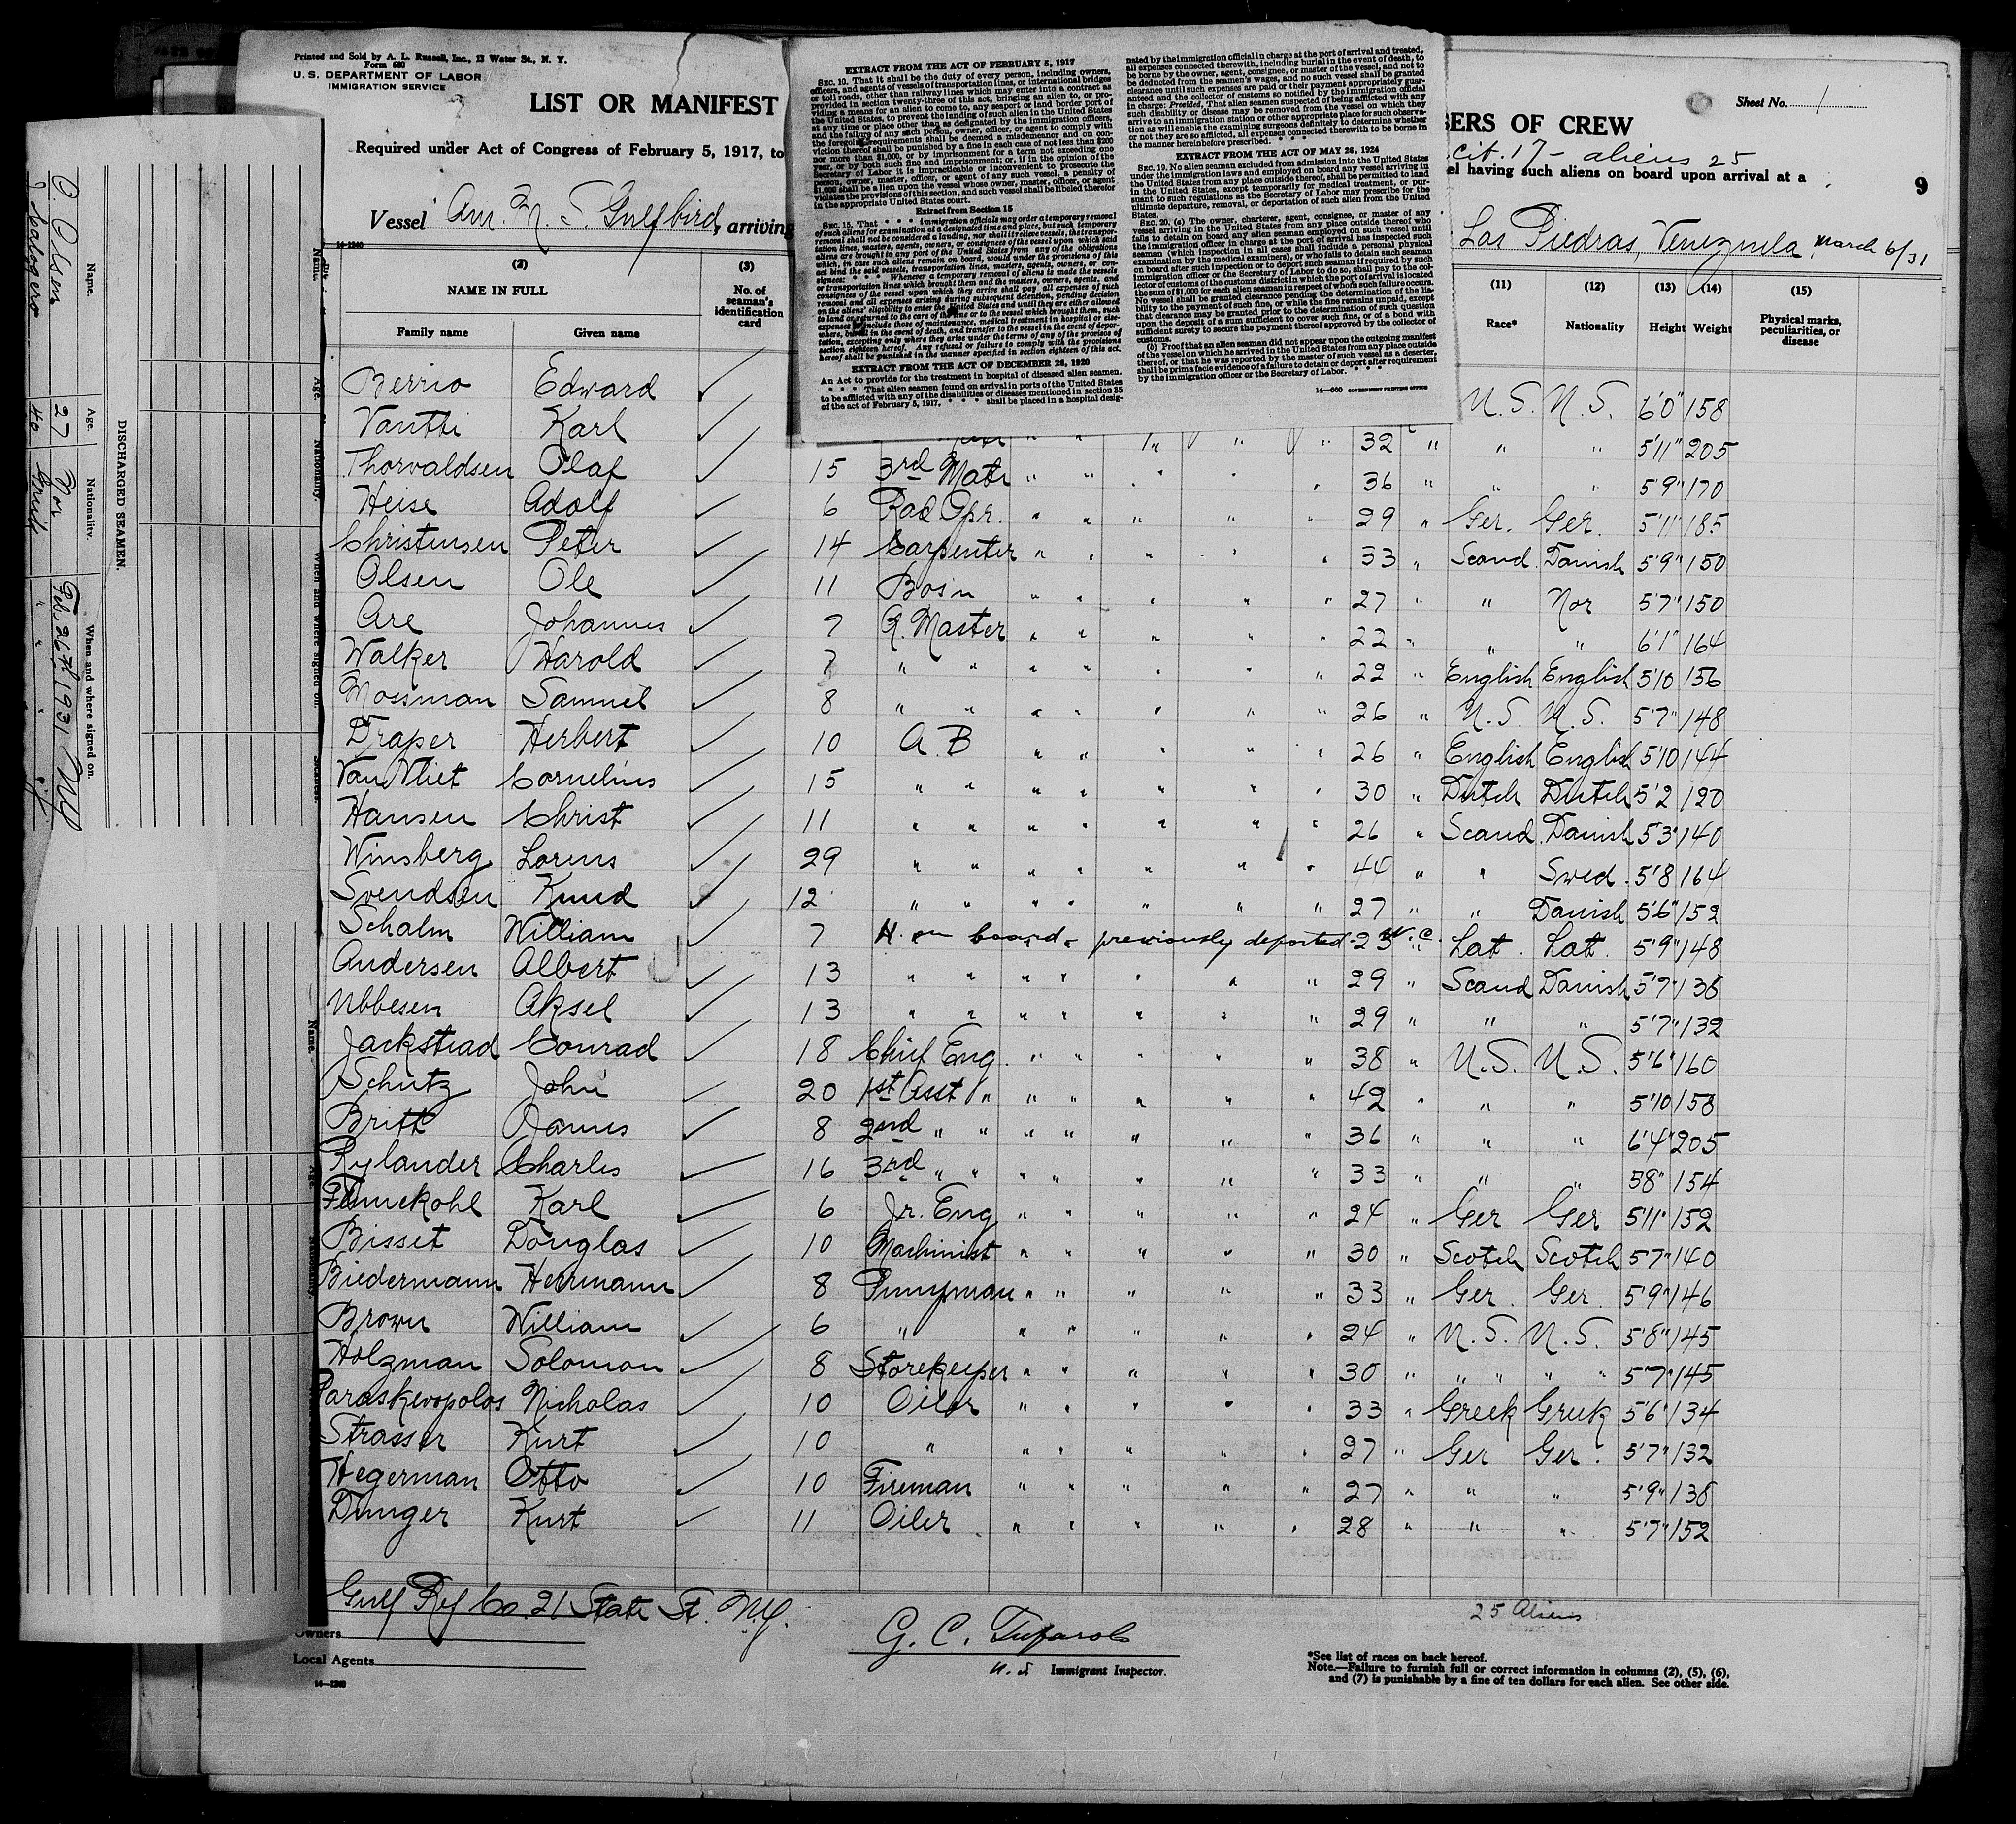 Printed and Sold by A. L. Russell, Inc., 13 Water St., N. Y.
Form 680
U. S. DEPARTMENT OF LABOR
IMMIGRATION SERVICE
LIST OR MANIFEST
Required under Act of Congress of February 5, 1917, to
Vessel Am. M. S. Gulfbird, arriving
14-1240
(2) (3)
NAME IN FULL No. of seaman's identification card
Family name Given name
EXTRACT FROM THE ACT OF FEBRUARY 5, 1917
SEC. 10. That it shall be the duty of every person, including owners,
officers, and agents of vessels of transportation lines, or international bridges
or toll roads, other than railway lines which may enter into a contract as
provided in section twenty-three of this act, bringing an alien to, or pro-
viding a means for an alien to come to, any seaport or land border port of
the United States, to prevent the landing of such alien in the United States
at any time or place other than as designated by the immigration officers,
and the failure of any such person, owner, officer, or agent to comply with
the foregoing requirements shall be deemed a misdemeanor and on con-
viction thereof shall be punished by a fine in each case of not less than $200
nor more than $1,000, or by imprisonment for a term not exceeding one
year, or by both such fine and imprisonment; or, if in the opinion of the
Secretary of Labor it is impracticable or inconvenient to prosecute the
person, owner, master, officer, or agent of any such vessel, a penalty of
$1,000 shall be a lien upon the vessel whose owner, master, officer, or agent
violates the provisions of this section, and such vessel shall be libeled therefor
in the appropriate United States court.
Extract from Section 15
SEC. 15. That * * * immigration officials may order a temporary removal
of such aliens for examination at a designated time and place, but such temporary
removal shall not be considered a landing, nor shall it relieve vessels, the transpor-
tation lines, masters, agents, owners, or consignees of the vessel upon which said
aliens are brought to any port of the United States from any of the obligations
which, in case such aliens remain on board, would under the provisions of this
act bind the said vessels, transportation lines, masters, agents, owners, or con-
signees: * * * Whenever a temporary removal of aliens is made the vessels
or transportation lines which brought them and the masters, owners, agents, and
consignees of the vessel upon which they arrive shall pay all expenses of such
removal and all expenses arising during subsequent detention, pending decision
on the aliens' eligibility to enter the United States and until they are either allowed
to land or returned to the care of the line or to the vessel which brought them, such
expenses to include those of maintenance, medical treatment in hospital or else-
where, burial in the event of death, and transfer to the vessel in the event of depor-
tation, excepting only where they arise under the terms of any of the provisos of
section eighteen hereof. Any refusal or failure to comply with the provisions
hereof shall be punished in the manner specified in section eighteen of this act.
EXTRACT FROM THE ACT OF DECEMBER 26, 1920
An Act to provide for the treatment in hospital of diseased alien seamen.
* * * That alien seamen found on arrival in ports of the United States
to be afflicted with any of the disabilities or diseases mentioned in section 35
of the act of February 5, 1917, * * * shall be placed in a hospital desig-
nated by the immigration official in charge at the port of arrival and treated,
all expenses connected therewith, including burial in the event of death, to
be borne by the owner, agent, consignee, or master of the vessel, and not to
be deducted from the seamen's wages, and no such vessel shall be granted
clearance until such expenses are paid or their payment appropriately guar-
anteed and the collector of customs so notified by the immigration official
in charge: Provided, That alien seamen suspected of being afflicted with any
such disability or disease may be removed from the vessel on which they
arrive to an immigration station or other appropriate place for such observa-
tion as will enable the examining surgeons definitely to determine whether
or not they are so afflicted, all expenses connected therewith to be borne in
the manner hereinbefore prescribed. * * *
EXTRACT FROM THE ACT OF MAY 26, 1924
SEC. 19. No alien seaman excluded from admission into the United States
under the immigration laws and employed on board any vessel arriving in
the United States from any place outside thereof, shall be permitted to land
in the United States, except temporarily for medical treatment, or pur-
suant to such regulations as the Secretary of Labor may prescribe for the
ultimate departure, removal, or deportation of such alien from the United
States.
SEC. 20. (a) The owner, charterer, agent, consignee, or master of any
vessel arriving in the United States from any place outside thereof who
fails to detain on board any alien seaman employed on such vessel until
the immigration officer in charge at the port of arrival has inspected such
seaman (which inspection in all cases shall include a personal physical
examination by the medical examiners), or who fails to detain such seaman
on board after such inspection or to deport such seaman if required by such
immigration officer or the Secretary of Labor to do so, shall pay to the col-
lector of customs of the customs district in which the port of arrival is located
the sum of $1,000 for each alien seaman in respect of whom such failure occurs.
No vessel shall be granted clearance pending the determination of the lia-
bility to the payment of such fine, or while the fine remains unpaid, except
that clearance may be granted prior to the determination of such question
upon the deposit of a sum sufficient to cover such fine, or of a bond with
sufficient surety to secure the payment thereof approved by the collector of
customs.
(b) Proof that an alien seaman did not appear upon the outgoing manifest
of the vessel on which he arrived in the United States from any place outside
thereof, or that he was reported by the master of such vessel as a deserter,
shall be prima facie evidence of a failure to detain or deport after requirement
by the immigration officer or the Secretary of Labor. * * *
14—660 GOVERNMENT PRINTING OFFICE
Sheet No. 1
BERS OF CREW
cit. 17 - aliens 25
el having such aliens on board upon arrival at a
9
Las Piedras, Venezuela, March 6/31
(11) (12) (13) (14) (15)
Race* Nationality Height Weight Physical marks, peculiarities, or disease
Berrio Edward ✓ U.S. U.S. 6'0" 158
Vantti Karl ✓ 32 " " " 5'11" 205
Thorvaldsen Olaf ✓ 15 3rd Mate " " " " " 36 " " " 5'9" 170
Heise Adolf ✓ 6 Rad. Opr. " " " " 29 " Ger. Ger. 5'11" 185
Christensen Peter ✓ 14 Carpenter " " " " " 33 " Scand. Danish 5'9" 150
Olsen Ole ✓ 11 Bos'n " " " " " 27 " " Nor 5'7" 150
Are Johannes ✓ 7 Q. Master " " " " " 22 " " " 6'1" 164
Walker Harold ✓ 7 " " " " " " 22 " English English 5'10 156
Mossman Samuel ✓ 8 " " " " " " " 26 " U.S. U.S. 5'7" 148
Draper Herbert ✓ 10 A.B " " " " " 26 " English English 5'10 144
Van Vliet Cornelius ✓ 15 " " " " " " " 30 " Dutch Dutch 5'2 120
Hansen Christ ✓ 11 " " " " " " " 26 " Scand. Danish 5'3" 140
Winsberg Lorens ✓ 29 " " " " " " " 44 " " Swed. 5'8 164
Svendsen Knud ✓ 12 " " " " " " " 27 " " Danish 5'6" 152
Schalm William ✓ 7 H. on board - previously deported - 23 " Lat. Lat. 5'9" 148
Andersen Albert ✓ 13 " " " " " " " 29 " Scand Danish 5'7" 138
Ubbesen Aksel ✓ 13 " " " " " " " 29 " " " 5'7" 132
Jackstead Conrad ✓ 18 Chief Eng. " " " " " 38 " U.S. U.S. 5'6" 160
Schutz John ✓ 20 1st Asst " " " " " " 42 " " " 5'10 158
Britt James ✓ 8 2nd " " " " " " " 36 " " " 6'4" 205
Rylander Charles ✓ 16 3rd " " " " " " " 33 " " " 38" 154
Karl ✓ 6 Jr. Eng " " " " " 24 " Ger Ger 5'11" 152
Bisset Douglas ✓ 10 Machinist " " " " " 30 " Scotch Scotch 5'7" 140
Biedermann Herrmann ✓ 8 Pumpman " " " " " 33 " Ger. Ger. 5'9" 146
Brown William ✓ 6 " " " " " " 24 " U.S. U.S. 5'8" 145
Holzman Solomon ✓ 8 Storekeeper " " " " " 30 " " " " " 5'7" 145
Paraskevopolos Nicholas ✓ 10 Oiler " " " " " 33 " Greek Greek 5'6" 134
Strasser Kurt ✓ 10 " " " " " " 27 " Ger Ger. 5'7" 132
Hegerman Otto ✓ 10 Fireman " " " " " 27 " " " 5'9" 138
Dunger Kurt ✓ 11 Oiler " " " " " 28 " " " 5'7" 152
Gulf Ref Co. 21 State St. N.Y.
Owners
Local Agents
14—1240
G. C.
U. S. Immigrant Inspector.
25 Aliens
*See list of races on back hereof.
Note.—Failure to furnish full or correct information in columns (2), (5), (6),
and (7) is punishable by a fine of ten dollars for each alien. See other side.
DISCHARGED SEAMEN.
Name. Age. Nationality. When and where signed on.
O. Olsen 27 Nor Feb 26th 1931 NY
J. Calogero 40 Greek " " "